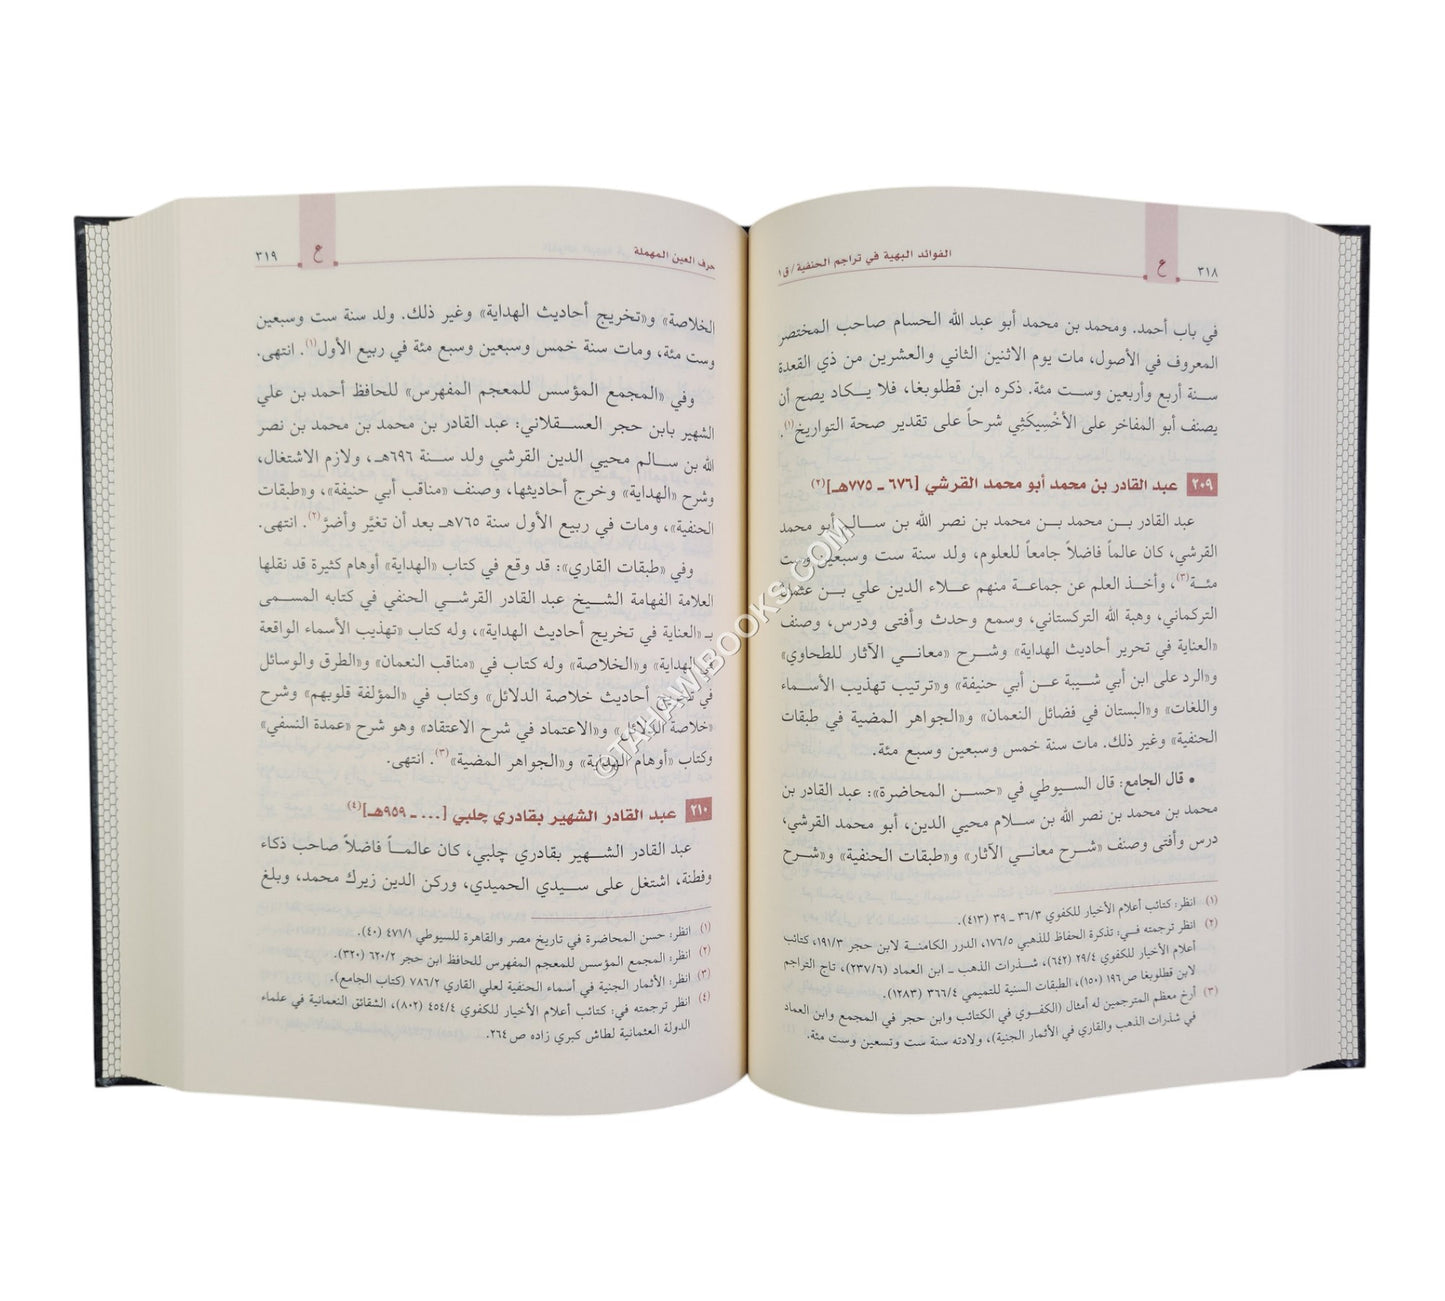 ٣١٨
ع
الفوائد البهية في تراجم الحنفية / ق ١
في باب أحمد. ومحمد بن محمد أبو عبد الله الحسام صاحب المختصر
المعروف في الأصول، مات يوم الاثنين الثاني والعشرين من ذي القعدة
سنة أربع وأربعين وست مئة. ذكره ابن قطلوبغا، فلا يكاد يصح أن
يصنف أبو المفاخر على الأخْسِيكَثِي شرحاً على تقدير صحة التواريخ(١).
٢٠٩ عبد القادر بن محمد أبو محمد القرشي [٦٧٦ ـ ٧٧٥هـ](٢)
عبد القادر بن محمد بن محمد بن نصر الله بن سالم أبو محمد
القرشي، كان عالماً فاضلاً جامعاً للعلوم، ولد سنة ست وسبعين وست
مئة(٣)، وأخذ العلم عن جماعة منهم علاء الدين علي بن عثمان
التركماني، وهبة الله التركستاني، وسمع وحدث وأفتى ودرس، وصنف
«العناية في تحرير أحاديث الهداية» وشرح «معاني الآثار للطحاوي»
و«الرد على ابن أبي شيبة عن أبي حنيفة» و«ترتيب تهذيب الأسماء
واللغات» و«البستان في فضائل النعمان» و«الجواهر المضية في طبقات
الحنفية» وغير ذلك. مات سنة خمس وسبعين وسبع مئة.
• قال الجامع: قال السيوطي في «حسن المحاضرة»: عبد القادر بن
محمد بن محمد بن نصر الله بن سلام محيي الدين، أبو محمد القرشي،
درس وأفتى وصنف «شرح معاني الآثار» و«طبقات الحنفية» و«شرح
(١) انظر: كتائب أعلام الأخيار للكفوي ٣٦/٣ ـ ٣٩ (٤١٣).
(٢) انظر ترجمته في: تذكرة الحفاظ للذهبي ١٧٦/٥، الدرر الكامنة لابن حجر ١٩١/٣، كتائب
أعلام الأخيار للكفوي ٢٩/٤ (٦٤٢)، شذرات الذهب ـ ابن العماد (٢٣٧/٦)، تاج التراجم
لابن قطلوبغا ص١٩٦ (١٥٠)، الطبقات السنية للتميمي ٣٦٦/٤ (١٢٨٣).
(٣) أرخ معظم المترجمين له أمثال (الكفوي في الكتائب وابن حجر في المجمع وابن العماد
في شذرات الذهب والقاري في الأثمار الجنية)، ولادته سنة ست وتسعين وست مئة.
حرف العين المهملة
ع
٣١٩
الخلاصة» و«تخريج أحاديث الهداية» وغير ذلك. ولد سنة ست وسبعين
وست مئة، ومات سنة خمس وسبعين وسبع مئة في ربيع الأول(١). انتهى.
وفي «المجمع المؤسس للمعجم المفهرس» للحافظ أحمد بن علي
الشهير بابن حجر العسقلاني: عبد القادر بن محمد بن محمد بن نصر
الله بن سالم محيي الدين القرشي ولد سنة ٦٩٦هـ، ولازم الاشتغال،
وشرح «الهداية» وخرج أحاديثها، وصنف «مناقب أبي حنيفة»، و«طبقات
الحنفية»، ومات في ربيع الأول سنة ٧٦٥هـ بعد أن تغيَّر وأضرَّ(٢). انتهى.
وفي «طبقات القاري»: قد وقع في كتاب «الهداية» أوهام كثيرة قد نقلها
العلامة الفهامة الشيخ عبد القادر القرشي الحنفي في كتابه المسمى
بـ «العناية في تخريج أحاديث الهداية»، وله كتاب «تهذيب الأسماء الواقعة
في الهداية» و«الخلاصة» وله كتاب في «مناقب النعمان» و«الطرق والوسائل
في تخريج أحاديث خلاصة الدلائل» وكتاب في «المؤلفة قلوبهم» وشرح
«خلاصة الدلائل» و«الاعتماد في شرح الاعتقاد» وهو شرح «عمدة النسفي»
وكتاب «أوهام الهداية» و«الجواهر المضية»(٣). انتهى.
٢١٠ عبد القادر الشهير بقادري چلبي [... ـ ٩٥٩هـ](٤)
عبد القادر الشهير بقادري چلبي، كان عالماً فاضلاً صاحب ذكاء
وفطنة، اشتغل على سيدي الحميدي، وركن الدين زيرك محمد، وبلغ
(١) انظر: حسن المحاضرة في تاريخ مصر والقاهرة للسيوطي ٤٧١/١ (٤٠).
(٢) انظر: المجمع المؤسس للمعجم المفهرس للحافظ ابن حجر ٦٢٠/٢ (٣٢٠).
(٣) انظر: الأثمار الجنية في أسماء الحنفية لعلي القاري ٧٨٦/٢ (كتاب الجامع).
(٤) انظر ترجمته في: كتائب أعلام الأخيار للكفوي ٤٥٤/٤ (٨٠٢)، الشقائق النعمانية في علماء
الدولة العثمانية لطاش كبري زاده ص٢٦٤.
©TAHAWIBOOKS.COM